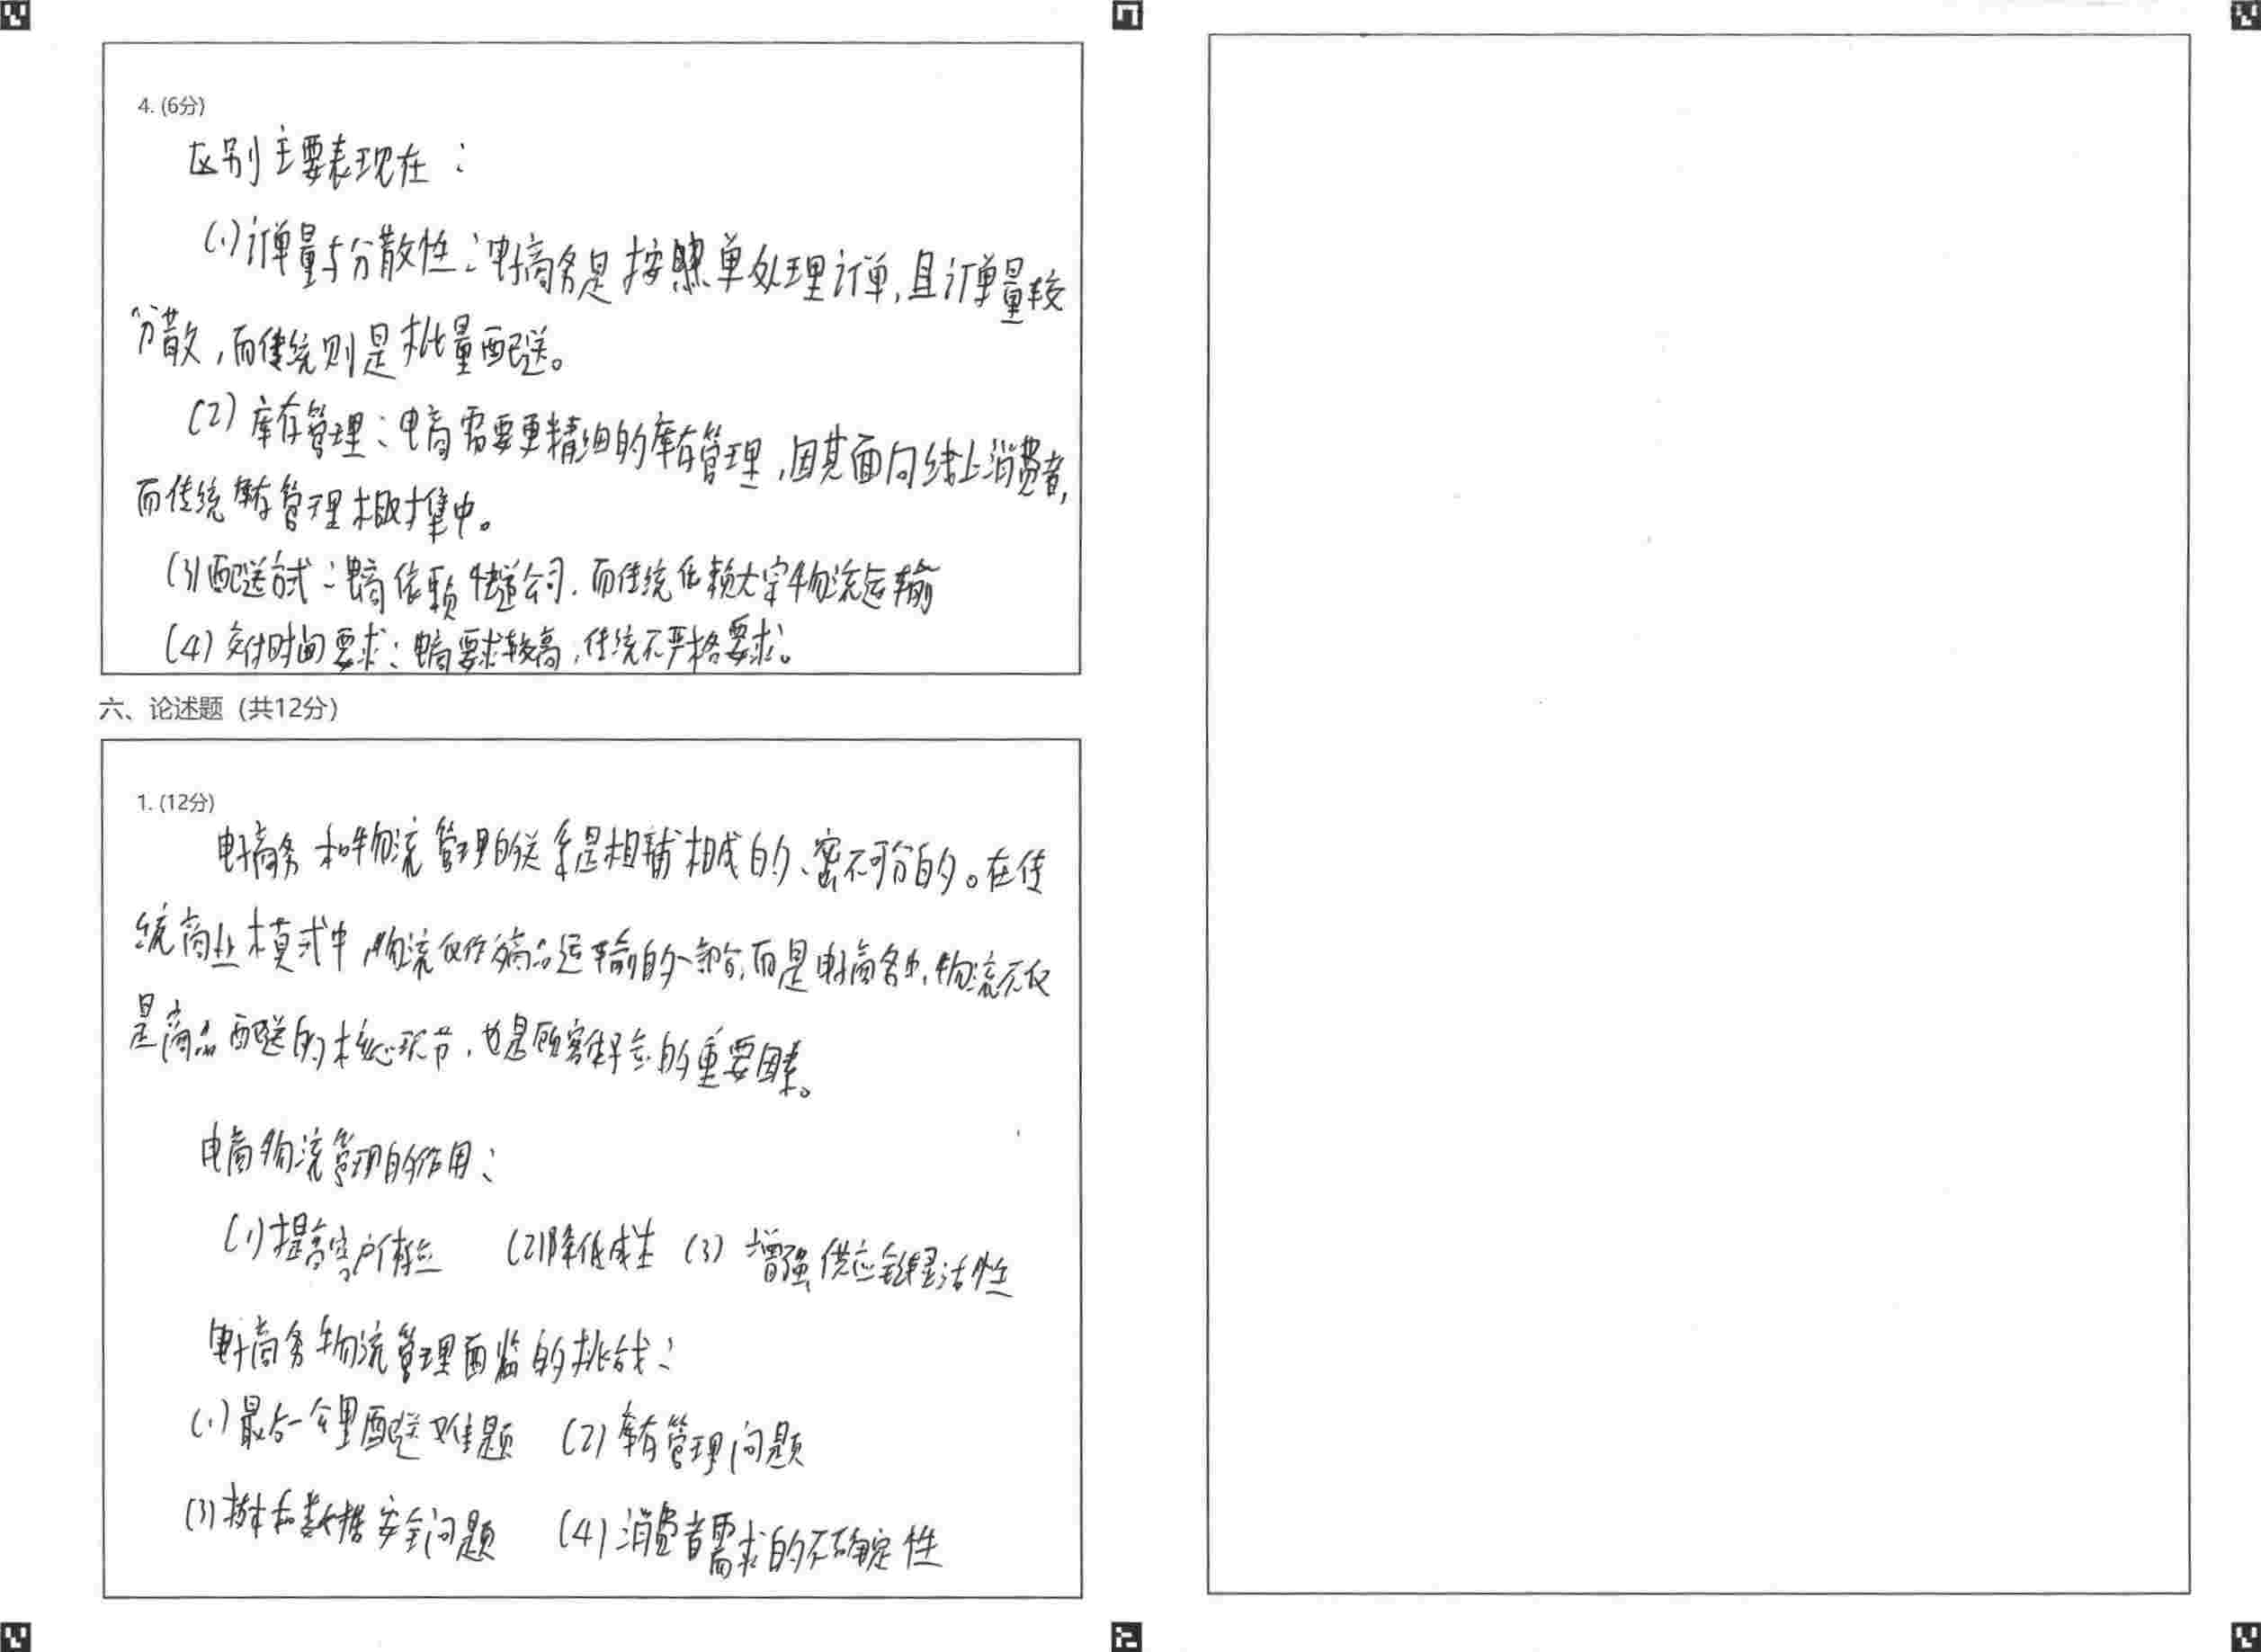 4. (6分)
区别主要表现在：
(1)订单量与分散性：电子商务是按照单处理订单,且订单量较
分散,而传统则是批量配送。
(2)库存管理：电商需要更精细的库存管理,因其面向线上消费者,
而传统库存管理相对集中。
(3)配送方式：电商依赖快递公司.而传统依赖大宗物流运输
(4)交付时间要求：电商要求较高,传统不严格要求。
六、论述题 (共12分)
1. (12分)
电子商务和物流管理的关系是相辅相成的、密不可分的。在传
统商业模式中,物流仅作为商品运输的一部分,而是电子商务中,物流不仅
是商品配送的核心环节,也是顾客体验的重要因素。
电商物流管理的作用：
(1)提高客户体验 (2)降低成本 (3) 增强供应链灵活性
电子商务物流管理面临的挑战：
(1)最后一公里配送难题 (2)库存管理问题
(3)技术和数据安全问题 (4)消费者需求的不确定性